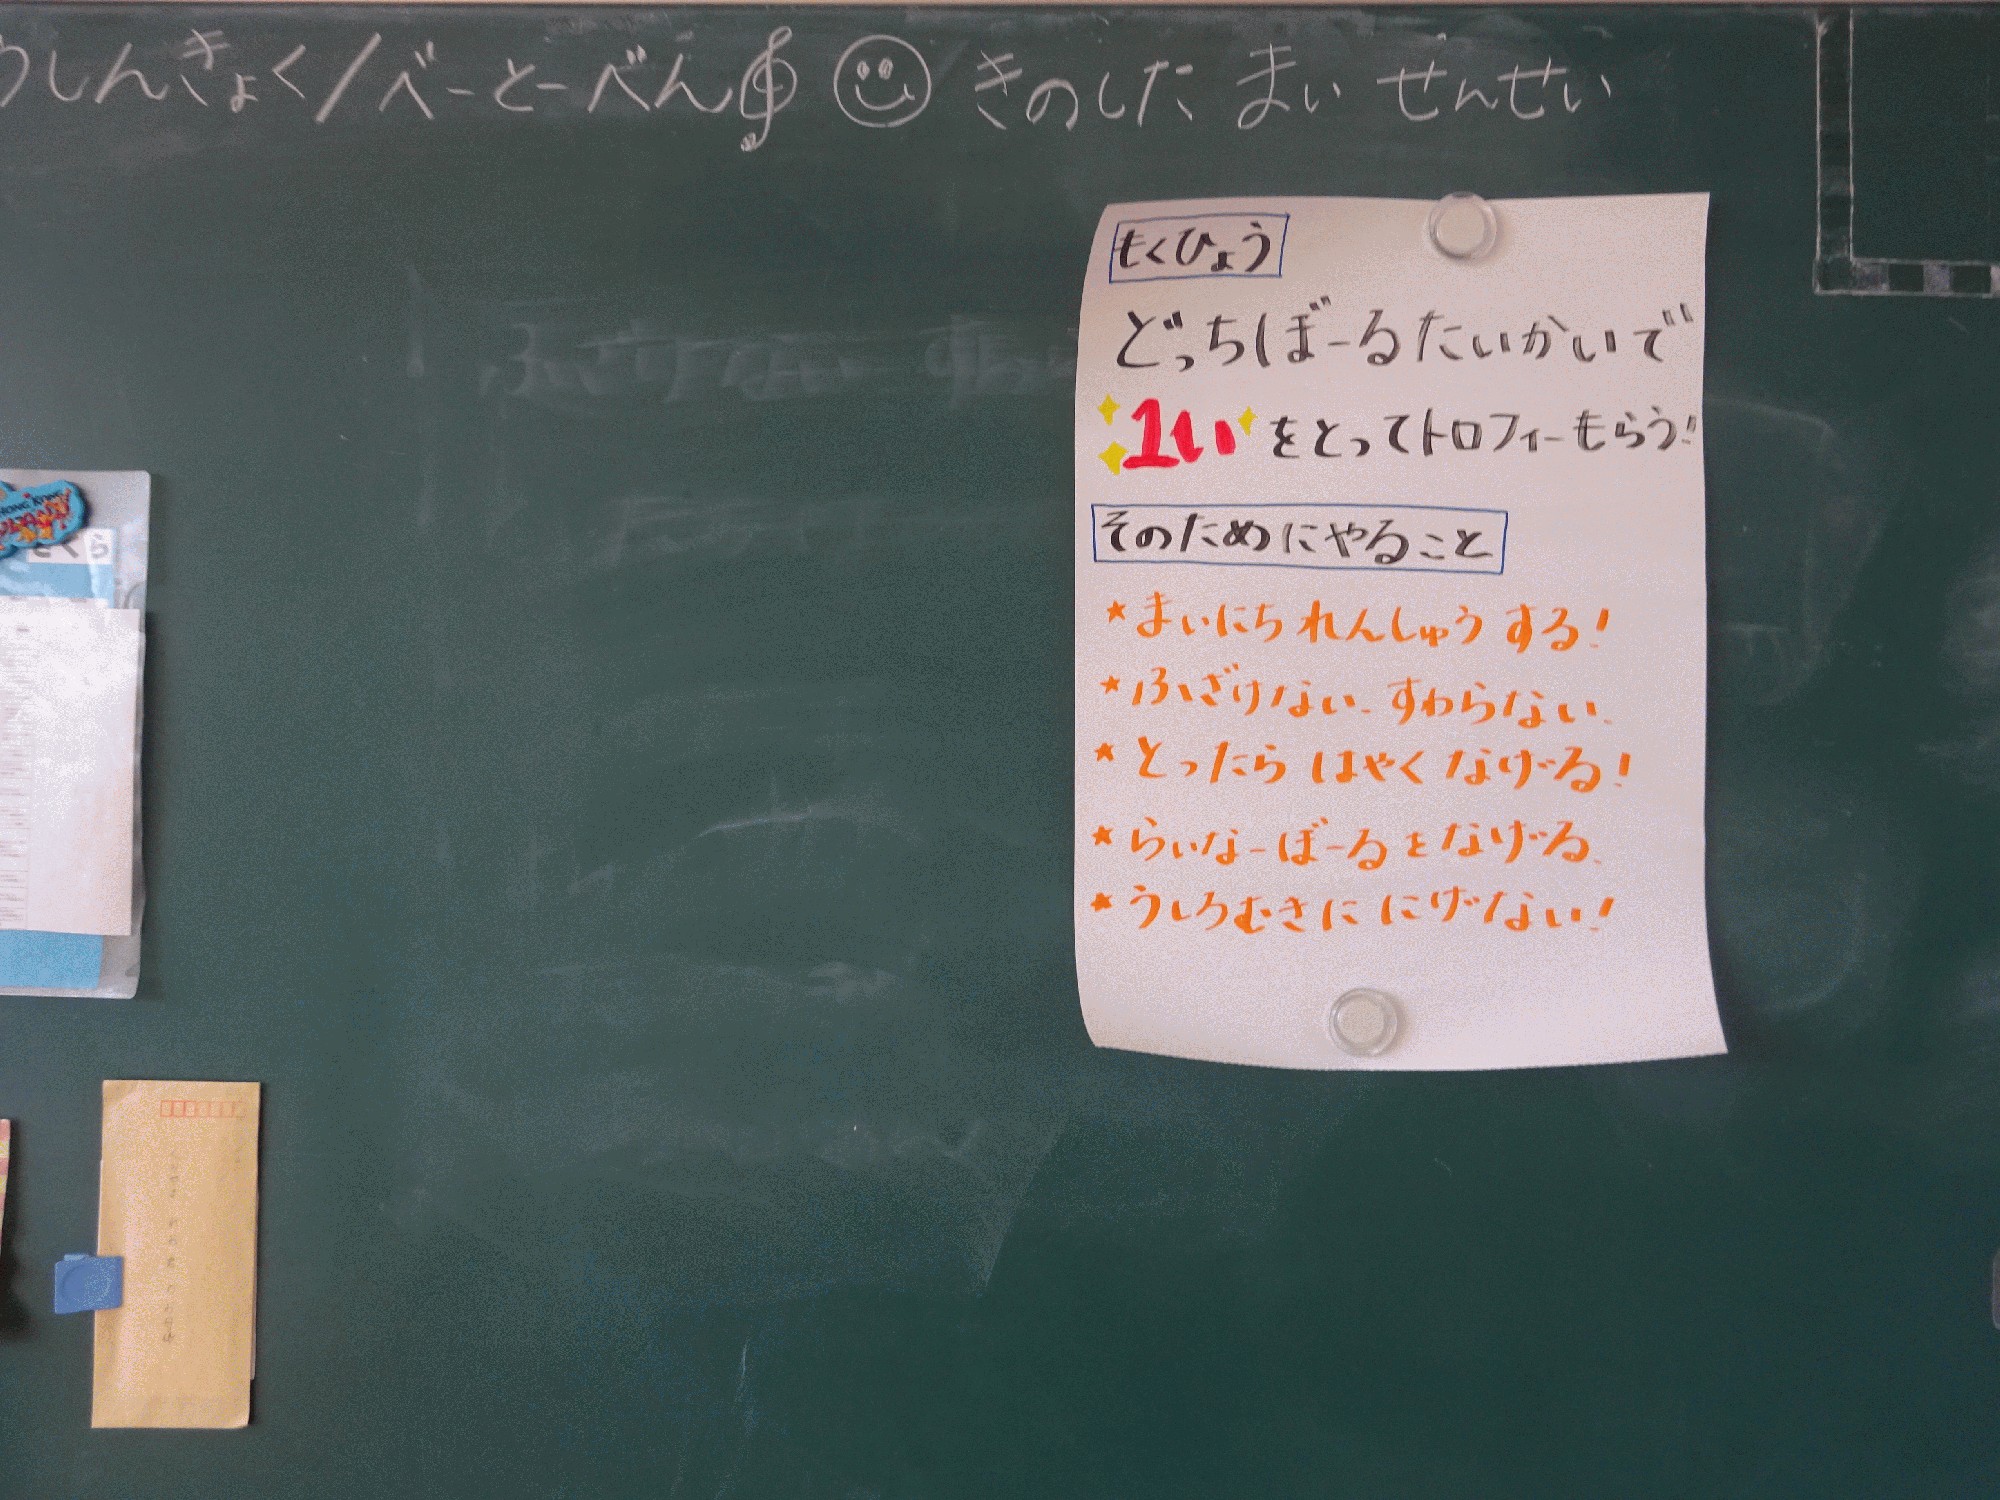 うしんきょく/べーとーべん きのした まい せんせい
もくひょう
どっちぼーるたいかいで
1いをとってトロフィーもらう!
そのためにやること
★まいにち れんしゅう する!
★ふざけない、すわらない、
★とったら はやく なげる!
★らいなーぼーるをなげる、
★うしろむきに にげない!
HONG KONG
さくら
ふざけない